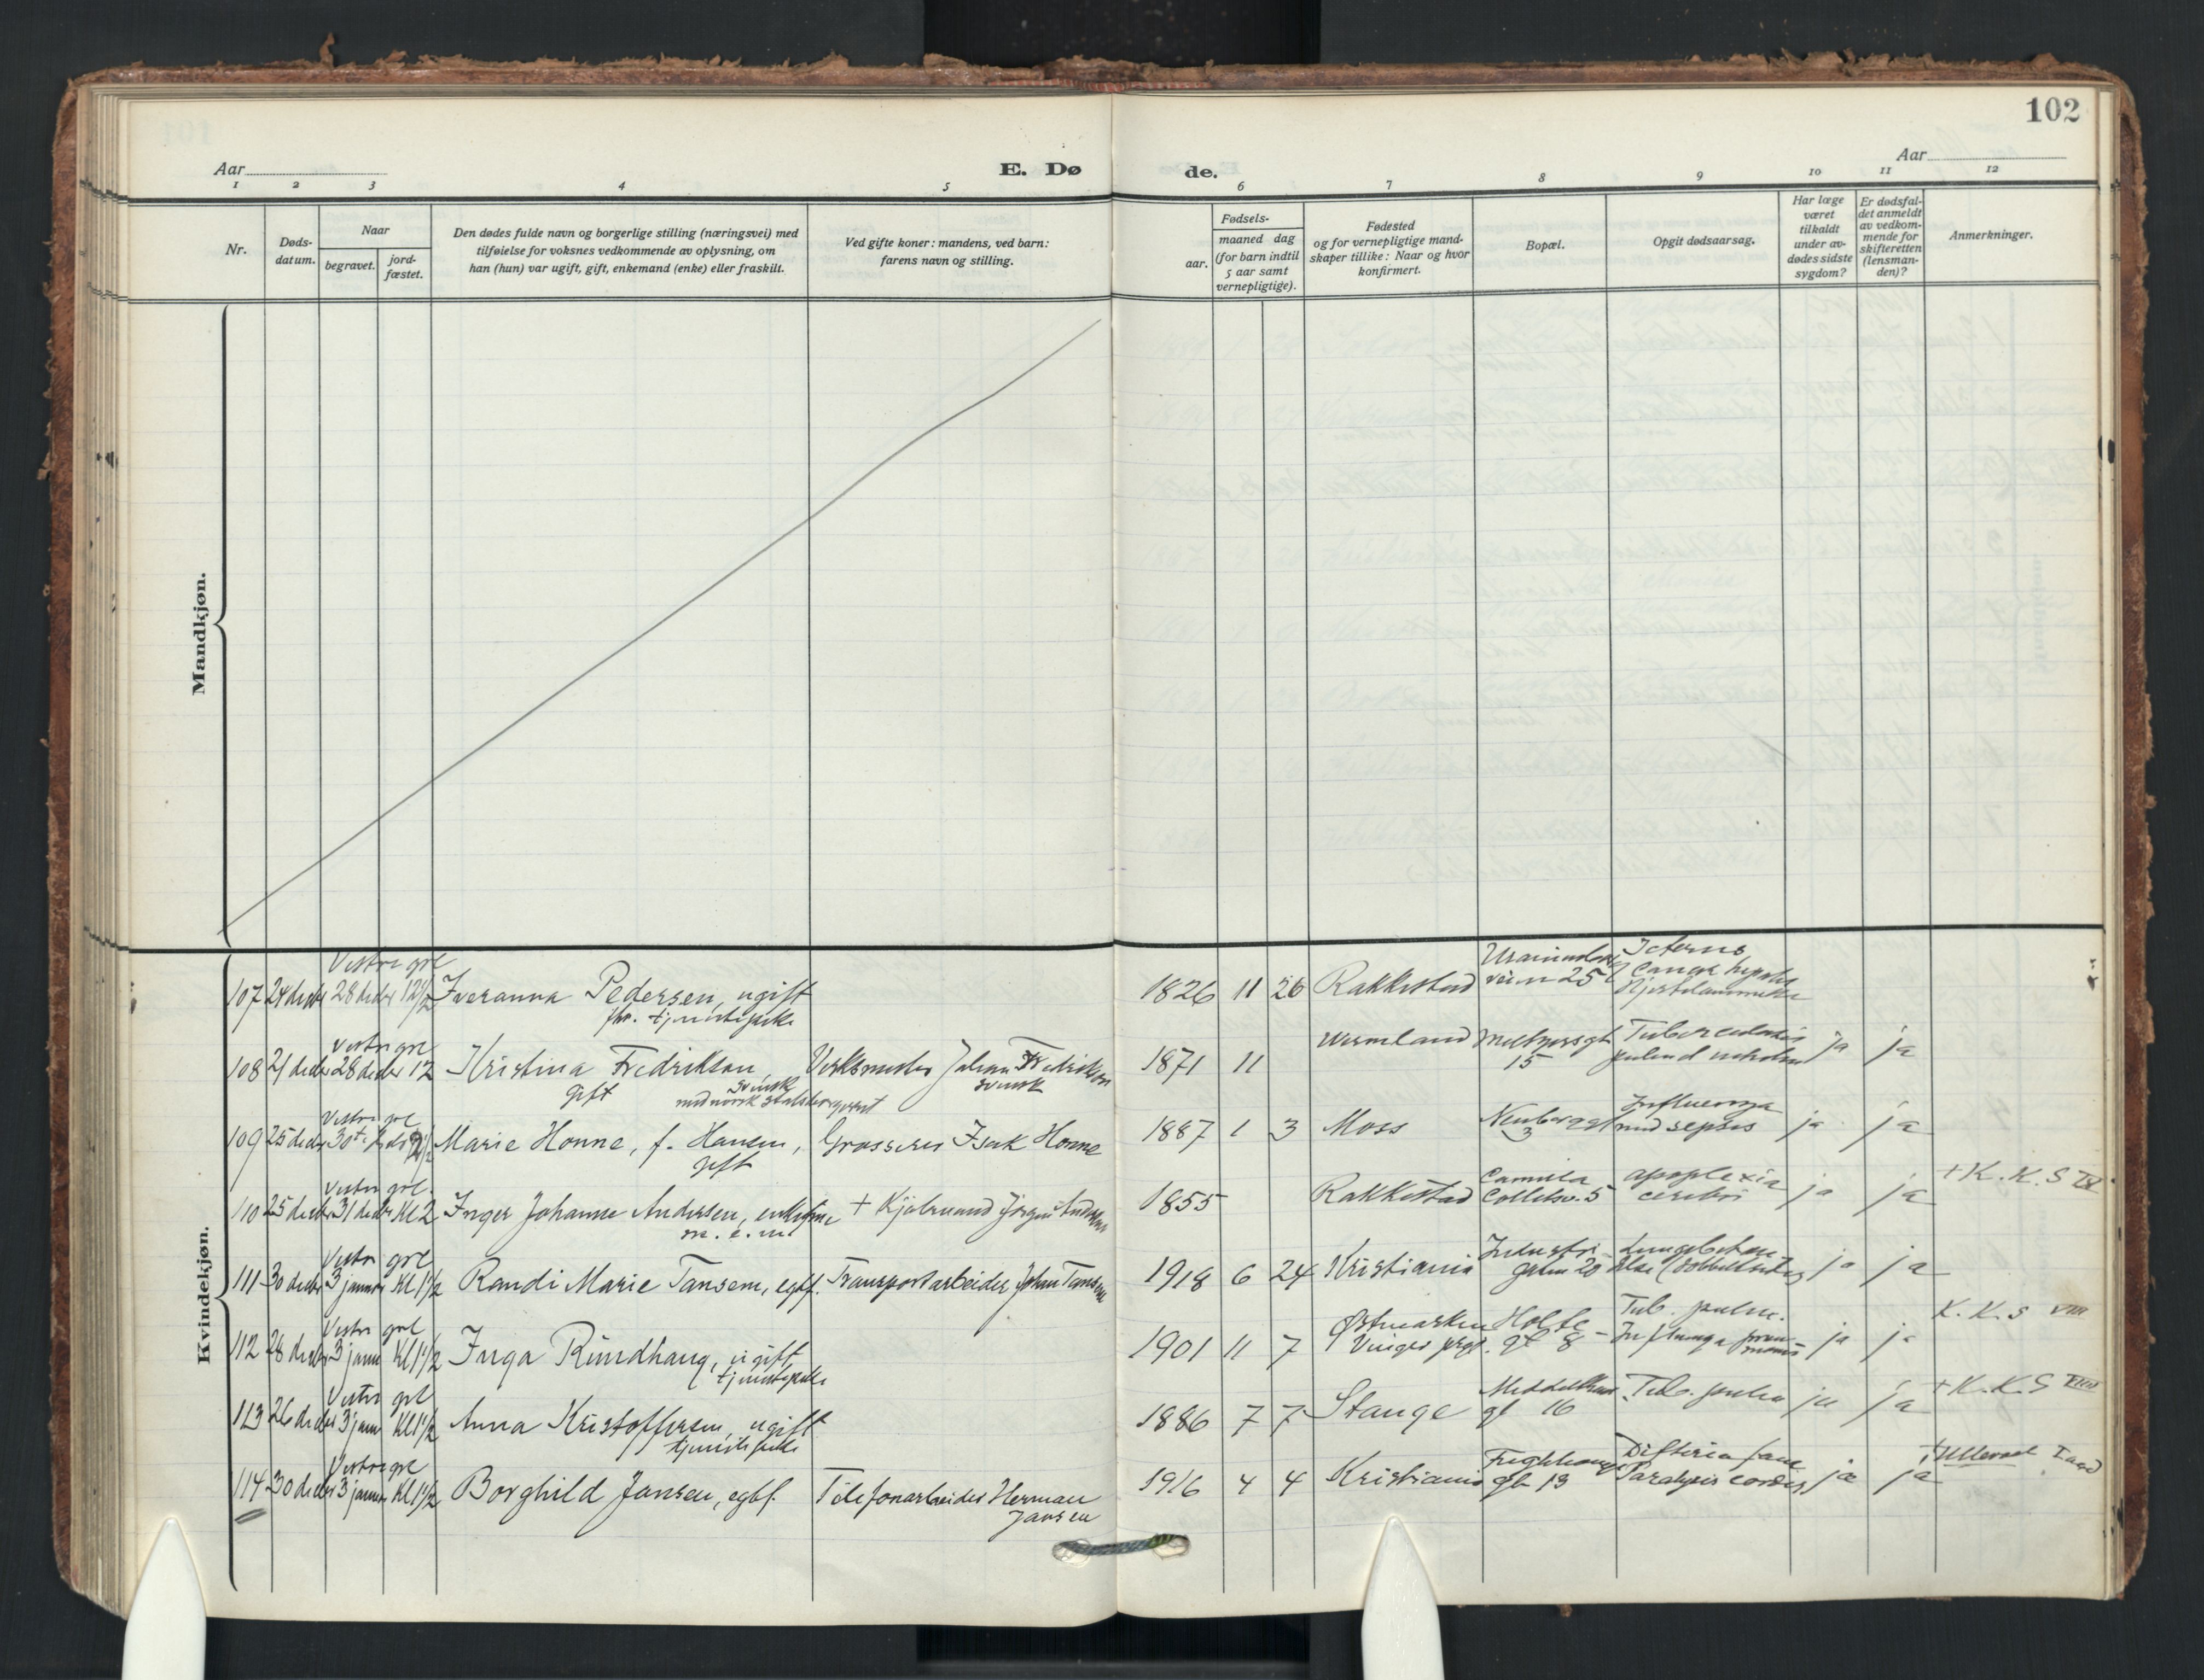 102
Aar
E. Dø
de.
Aar
1 2 3 4 5 6 7 8 9 10 11 12
Nr.
Døds-
datum.
Naar
begravet.
jord-
fæstet.
Den dødes fulde navn og borgerlige stilling (næringsvei) med
tilføielse for voksnes vedkommende av oplysning, om
han (hun) var ugift, gift, enkemand (enke) eller fraskilt.
Ved gifte koner: mandens, ved barn:
farens navn og stilling.
aar.
Fødsels-
maaned dag
(for barn indtil
5 aar samt
vernepligtige).
Fødested
og for vernepligtige mand-
skaper tillike: Naar og hvor
konfirmert.
Bopæl.
Opgit dødsaarsag.
Har læge
været
tilkaldt
under av-
dødes sidste
sygdom?
Er dødsfal-
det anmeldt
av vedkom-
mende for
skifteretten
(lensman-
den)?
Anmerkninger.
Mandkjøn.
Kvindekjøn.
Vestre grl
107 24 decbr 28 decbr 12½ Iveranna Pedersen, ugift 1826 11 26 Rakkestad veien 25 Cancer hepatis
tjenestepike
Vestre grl
108 21 decbr 28 decbr 12 Kristina Fredrikson, Verksmester Johan Fredrikson 1871 11 Wermland 15 Tuberculosis ja ja
gift svensk svensk
Vestre grl
109 25 decbr 30te Marie Honne, f. Hansen, Grosserer Isak Honne 1887 1 3 Moss Neuberggt 3 Influenza med sepsis ja ja
gift
Vestre grl.
110 25 decbr 31 decbr Kl 2 Inger Johanne Andersen, enkefru + Kjølmand Jørgen Andersen 1855 Rakkestad Camilla Colletsv. 5 apoplexia cerebri ja ja + K. K. S IX
m. e. m
Vestre grl
111 30 decbr 3 januar Kl 1½ Randi Marie Tansem, egtf. Transportarbeider Johan Tansem 1918 6 24 Kristiania Industri gaten 20 ja ja
Vestre grl
112 28 decbr 3 janu Kl 1½ Inga Rundhaug, ugift 1901 11 7 Østmarken Vinger prgd. Holte gt 8 Tub. pulm. Influenza ja ja K. K. S VIII
tjenestepike
Vestre grl
113 26 decbr 3 janu Kl 1½ Anna Kristoffersen, ugift 1886 7 7 Stange gt 16 Tub. pulm ja ja + K. K. S VIII
tjenestepike
Vestre grl
114 30 decbr 3 januar Kl 1½ Borghild Jansen, egtf. Telefonarbeider Herman 1916 4 4 Kristiania gt 13 Difteria Paralysis cordis ja ja + Ullevaal
Jansen